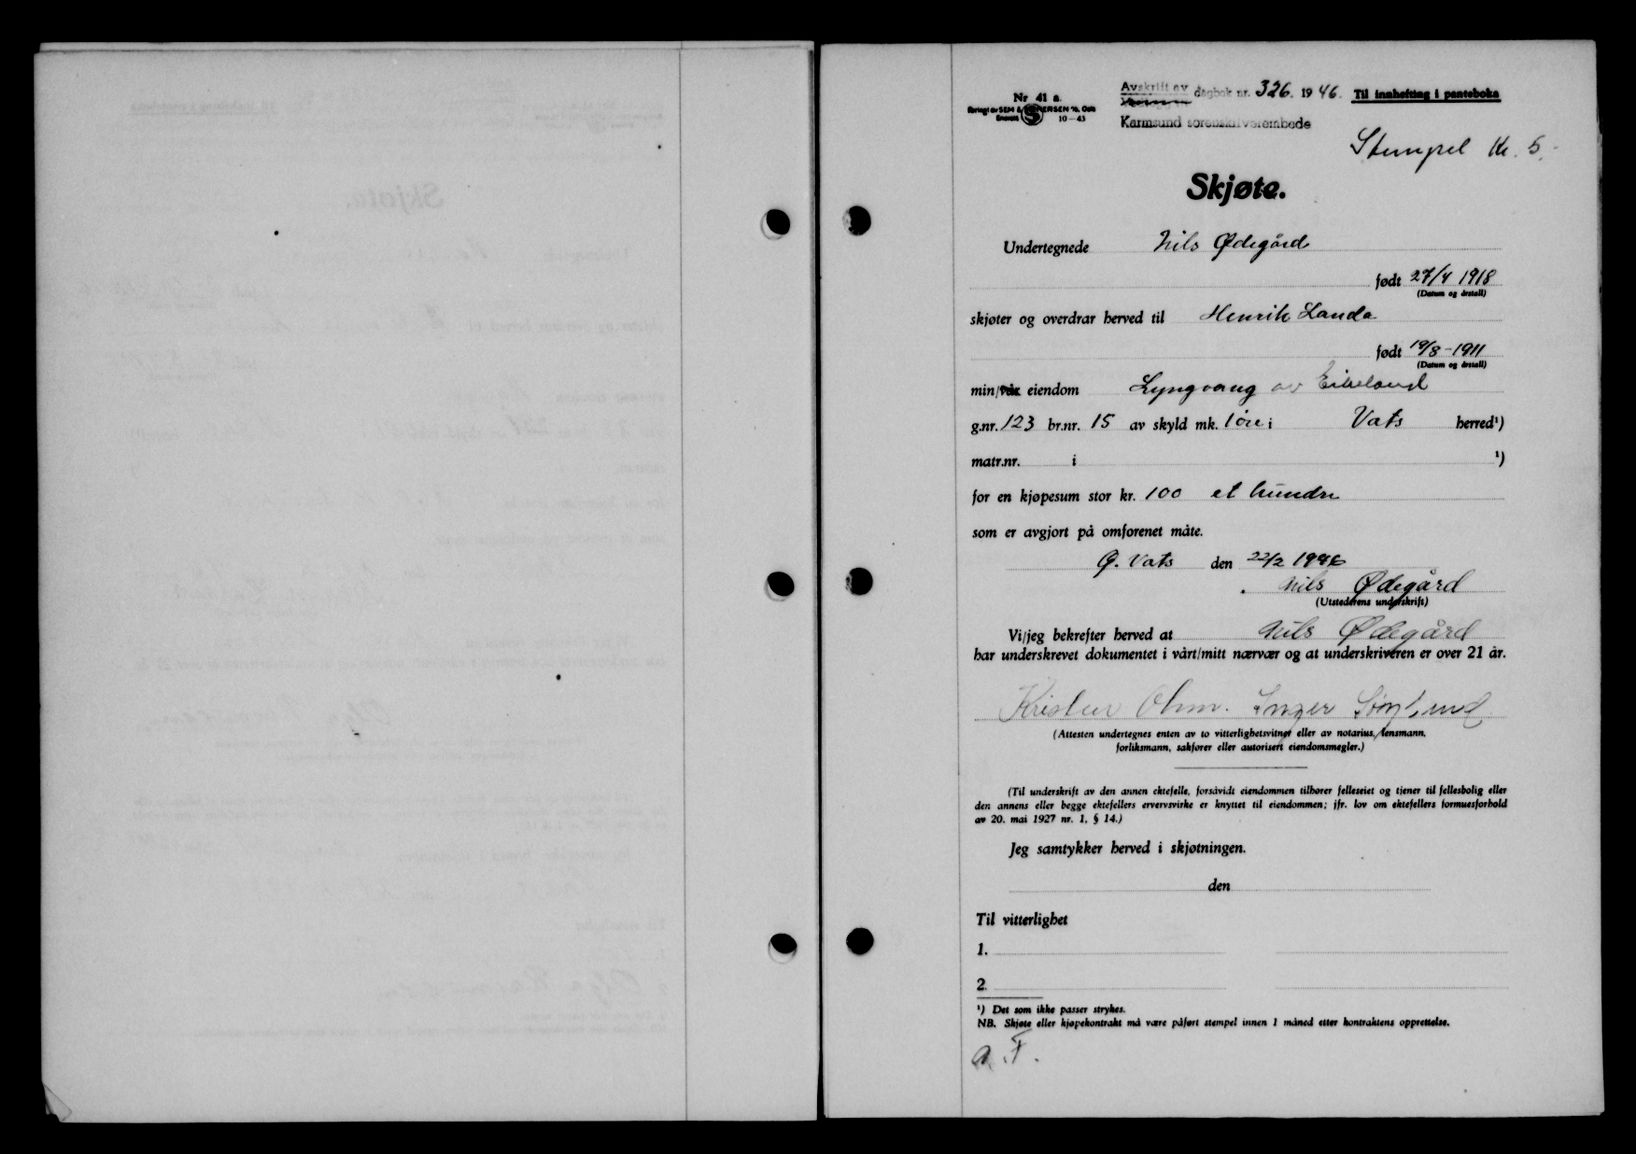 Nr 41 a. Avskrift av dagbok nr. 326. 1946. Til innhefting i panteboka
Karmsund sorenskriverembede
10-43
Stempel Kr. 5.-
Skjøte.
Undertegnede Nils Ødegård
født 27/4 1918
(Datum og årstall)
skjøter og overdrar herved til Henrik Landa
født 19/8-1911
(Datum og årstall)
min/vår eiendom Lyngvang av Eikeland
g.nr. 123 br.nr. 15 av skyld mk. 1 øre i Vats herred¹)
matr.nr. i ¹)
for en kjøpesum stor kr. 100 et hundre
som er avgjort på omforenet måte.
Ø. Vats den 22/2 1946
Nils Ødegård
(Utstederens underskrift)
Vi/jeg bekrefter herved at Nils Ødegård
har underskrevet dokumentet i vårt/mitt nærvær og at underskriveren er over 21 år.
Kristen Inger
(Attesten undertegnes enten av to vitterlighetsvitner eller av notarius, lensmann,
forliksmann, sakfører eller autorisert eiendomsmegler.)
(Til underskrift av den annen ektefelle, forsåvidt eiendommen tilhører felleseiet og tjener til fellesbolig eller
den annens eller begge ektefellers ervervsvirke er knyttet til eiendommen; jfr. lov om ektefellers formuesforhold
av 20. mai 1927 nr. 1, § 14.)
Jeg samtykker herved i skjøtningen.
den
Til vitterlighet
1.
2.
¹) Det som ikke passer strykes.
NB. Skjøte eller kjøpekontrakt må være påført stempel innen 1 måned etter kontraktens opprettelse.
a.F.